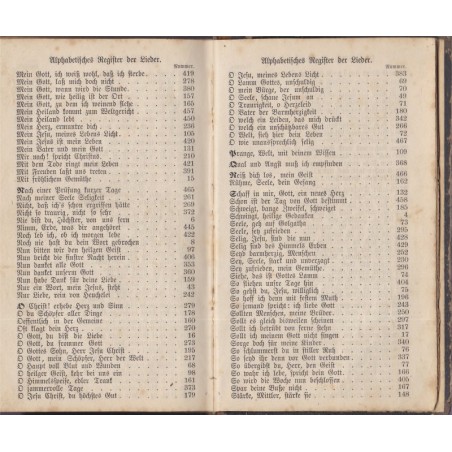 Alphabetisches Register der Lieder.
Nummer.
Mein Gott, ich weiß wohl, daß ich sterbe 419
Mein Gott, laß mich doch nicht 278
Mein Gott, wenn wird die Stunde 380
Mein Gott, wie heilig ist der Ort 157
Mein Gott, zu dem ich weinend flehe 165
Mein Heiland kommt zum Weltgericht 457
Mein Heiland lebt 450
Mein Herz, ermuntre dich 236
Mein Jesu, meines Lebens 105
Mein Jesus ist mein Leben 430
Mein Vater und mein Gott 231
Mir nach! spricht Christus 210
Mit dem Tode ringt mein Leben 421
Mit Freuden laßt uns treten 391
Mit fröhlichem Gemüthe 15
Nach einer Prüfung kurzer Tage 465
Nach meiner Seele Seligkeit 201
Nicht, daß ich's schon ergriffen hätte 269
Nicht so traurig, nicht so sehr 372
Nie bist du, Höchster, von uns fern 6
Nimm, Erde, was dir angehöret 445
Noch leb ich, ob ich morgen lebe 422
Noch sie hast du dein Wort gebrochen 8
Nun bitten wir den heiligen Geist 97
Nun bricht die finstre Nacht herein 406
Nun danket alle Gott 353
Nun danket unserm Gott 360
Nun habe Dank für deine Liebe 159
Nur ein Wort, mein Jesus, sieht 43
Nur Liebe, rein von Heuchelei 242
O Christ! erhebe Herz und Sinn 279
O du Schöpfer aller Dinge 178
Oeffentlich in der Gemeine 160
Oft klagt dein Herz 270
O Gott, du bist die Liebe 16
O Gott, du frommer Gott 273
O Gottes Sohn, Herr Jesu Christ 195
O Gott, mein Schöpfer, Herr der Welt 217
O Haupt voll Blut und Wunden 68
O heiliger Geist, kehr bei uns ein 98
O Himmelsspeise, edler Trank 161
O jammervolle Tage 373
O Jesu Christ, du höchstes Gut 179
Alphabetisches Register der Lieder.
Nummer.
O Jesu, meines Lebens Licht 383
O Lamm Gottes, unschuldig 69
O mein Bürge, der unschuldig 70
O Seele, schaue Jesum an 49
O Traurigkeit, o Herzeleid 71
O Vater der Barmherzigkeit 180
O welch ein Leiden, das mich drückt 142
O welch ein unschätzbares Gut 266
O Welt, sieh hier dein Leben 72
O wie unaussprechlich selig 467
Prange, Welt, mit deinem Wissen 109
Qual und Angst muß ich empfinden 368
Reiß dich los, mein Geist 466
Rühme, Seele, dein Gesang 162
Schaff in mir, Gott, ein neues Herz 132
Schon ist der Tag von Gott bestimmt 458
Schweigt, bange Zweifel, schweiget 185
Schwingt, heilige Gedanken 4
Seele, geh auf Golgatha 73
Seele, sey zufrieden 295
Selig, Jesu, sind die nur 428
Selig sind des Himmels Erben 429
Seyd barmherzig, Menschen 252
Sey, Seele, stark und unverzagt 230
Sey zufrieden, mein Gemüthe 296
Siehe, mein getreuer Knecht 74
So fliehen unsre Tage hin 404
So gehst du, Jesu, williglich 75
So hoff ich denn mit festem Muth 196
So jemand spricht: ich liebe Gott 243
Sollten Menschen, meine Brüder 249
Sollt es gleich bisweilen scheinen 297
Sollt ich betrübt von ferne stehn 317
Sollt ich meinem Gott nicht singen 17
Sorge doch für meine Kinder 340
So schlummerst du in stiller Ruh 76
So leb ich denn von Gott vorhanden 337
So übergibst du, Herr, den Geist 77
So wahr ich lebe, spricht dein Gott 166
So wird die Woche nun beschlossen 405
Spar deine Buße nicht 167
Stärke, Mittler, stärke sie 148